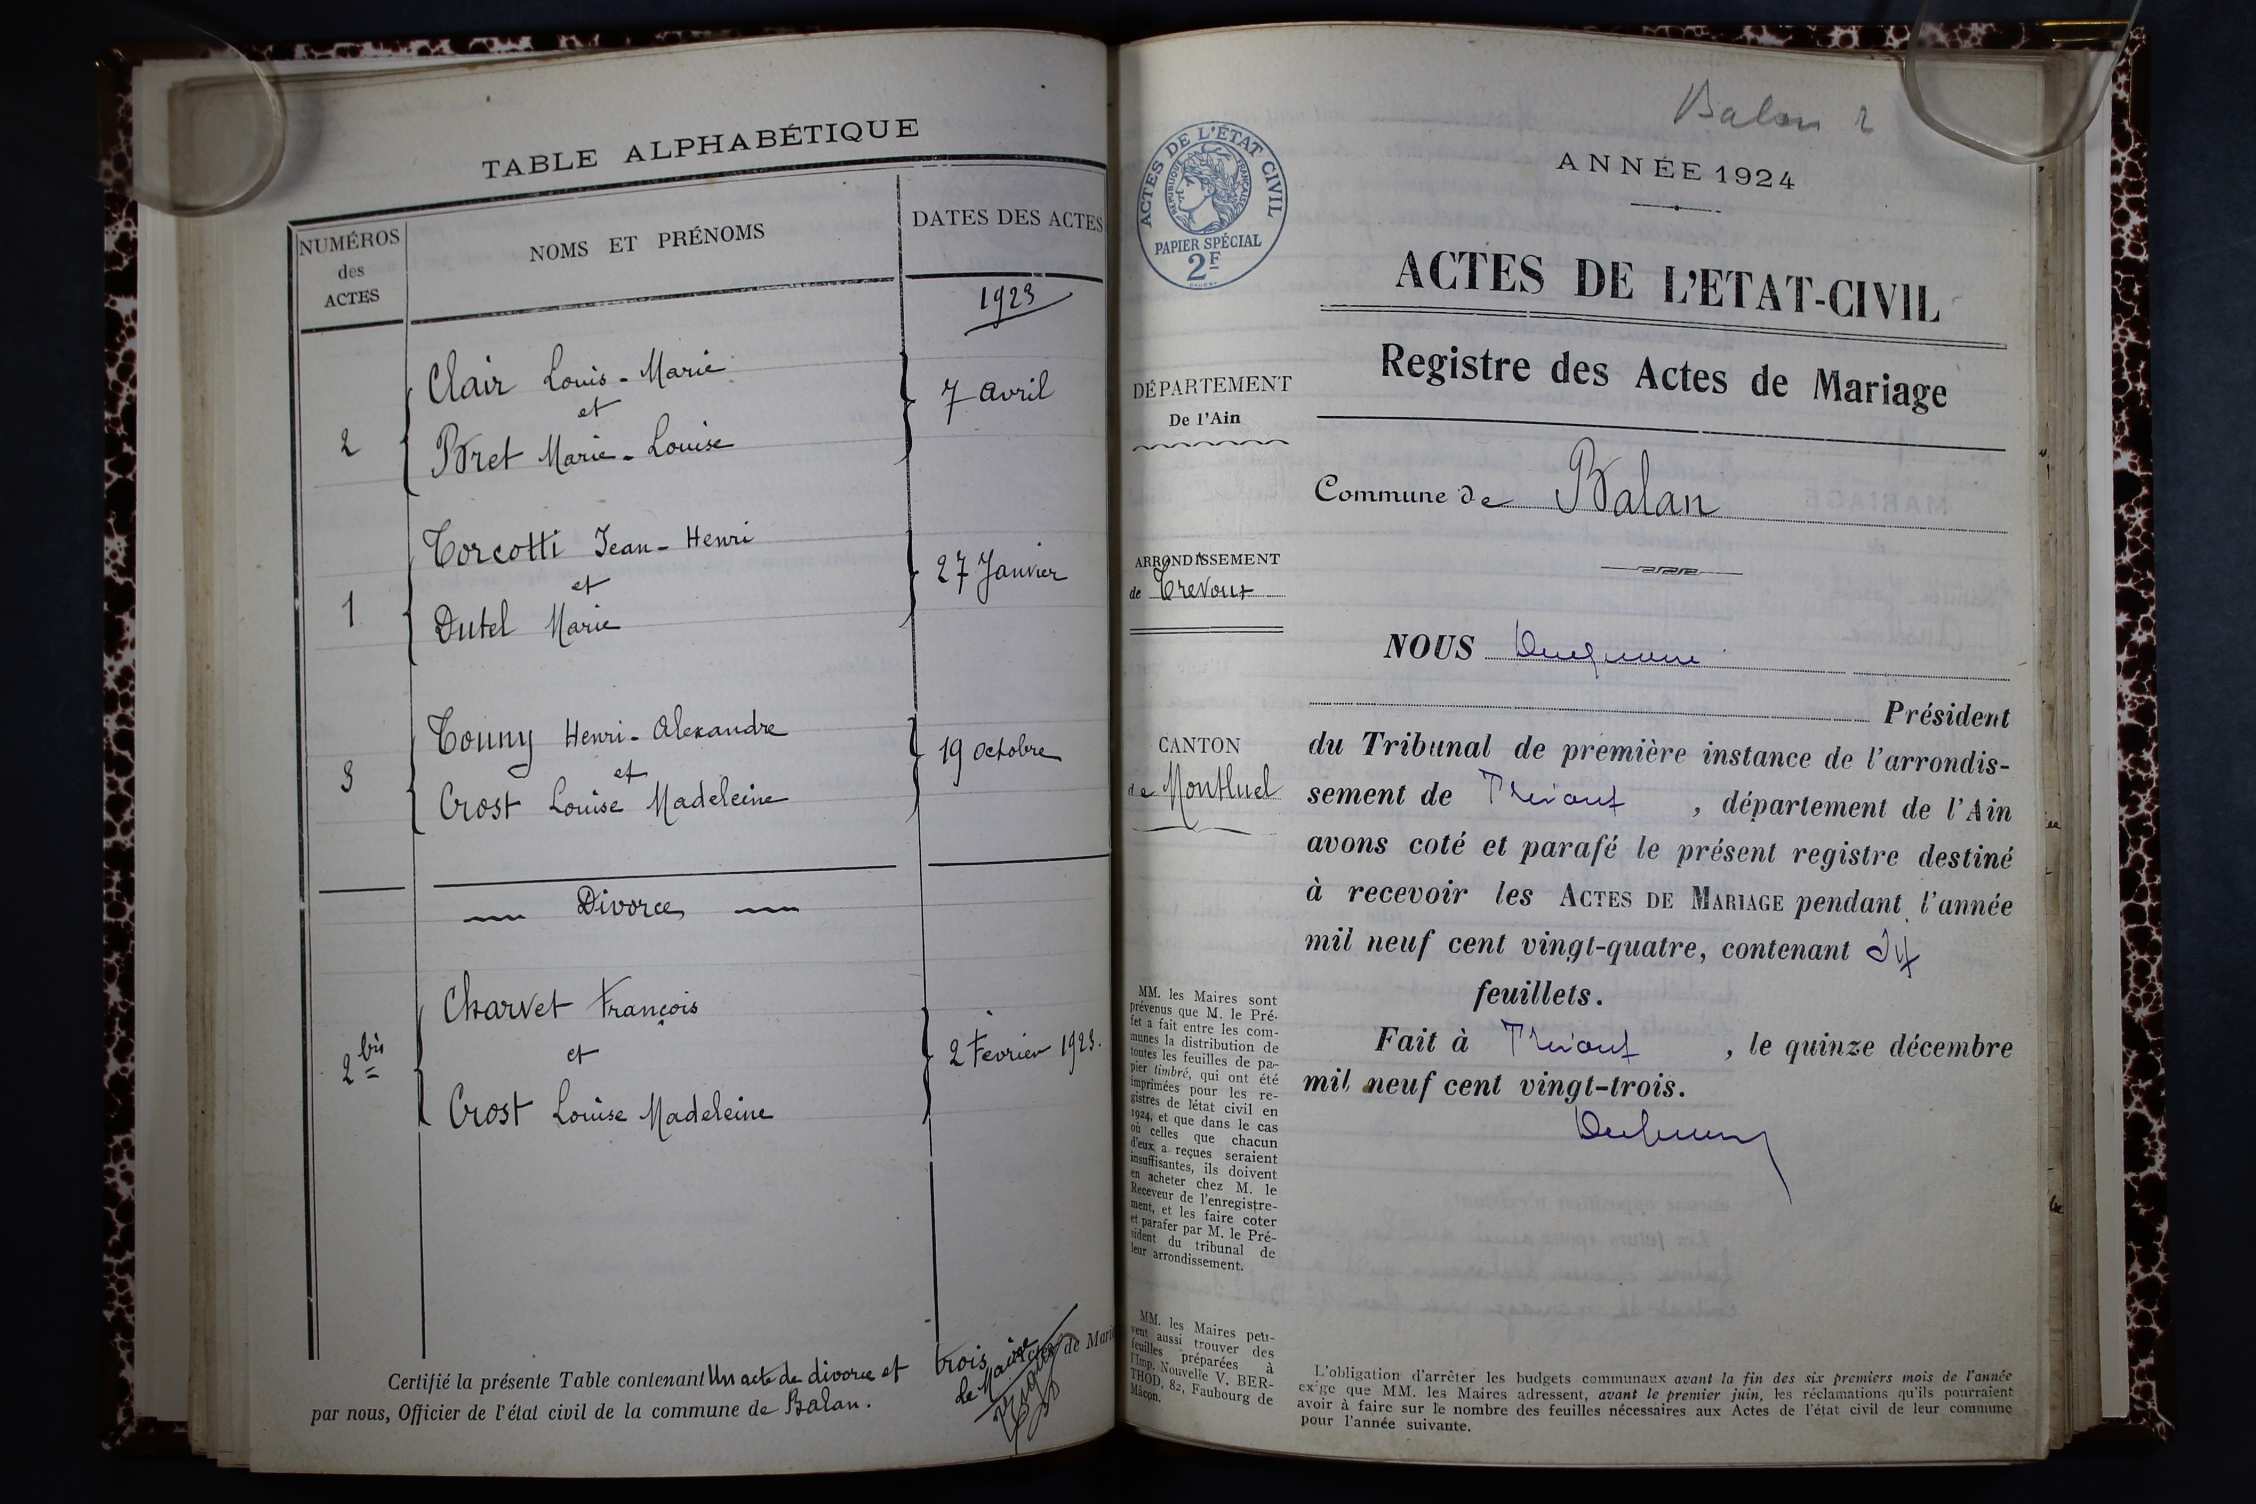 TABLE ALPHABÉTIQUE
NUMÉROS
des
ACTES
NOMS ET PRÉNOMS
DATES DES ACTES
1923
Clair Louis-Marie
et
2
7 avril
Bret Marie-Louise
Torcotti Jean-Henri
et
1
27 Janvier
Dutel Marie
Touny Henri-Alexandre
et
3
19 octobre
Crost Louise Madeleine
Divorce
Charvet François
et
2 bis
2 Février 1923.
Crost Louise Madeleine
Certifié la présente Table contenant Un acte de divorce et trois actes de Mari
par nous, Officier de l'état civil de la commune de Balan.
Le Maire
Balan 2
ANNÉE 1924
ACTES DE L'ÉTAT CIVIL
RÉPUBLIQUE FRANÇAISE
PAPIER SPÉCIAL
2F
ACTES DE L'ETAT-CIVIL
Registre des Actes de Mariage
DÉPARTEMENT
De l'Ain
Commune de Balan
ARRONDISSEMENT
de Trevoux
CANTON
de Montluel
NOUS
Président
du Tribunal de première instance de l'arrondis-
sement de Trévoux, département de l'Ain
avons coté et parafé le présent registre destiné
à recevoir les ACTES DE MARIAGE pendant l'année
mil neuf cent vingt-quatre, contenant
feuillets.
Fait à Trévoux, le quinze décembre
mil neuf cent vingt-trois.
MM. les Maires sont
prévenus que M. le Pré-
fet a fait entre les com-
munes la distribution de
toutes les feuilles de pa-
pier timbré, qui ont été
imprimées pour les re-
gistres de l'état civil en
1924, et que dans le cas
où celles que chacun
d'eux a reçues seraient
insuffisantes, ils doivent
en acheter chez M. le
Receveur de l'enregistre-
ment, et les faire coter
et parafer par M. le Pré-
sident du tribunal de
leur arrondissement.
MM. les Maires peu-
vent aussi trouver des
feuilles préparées à
l'Imp. Nouvelle V. BER-
THOD, 82, Faubourg de
Mâcon.
L'obligation d'arrêter les budgets communaux avant la fin des six premiers mois de l'année
exige que MM. les Maires adressent, avant le premier juin, les réclamations qu'ils pourraient
avoir à faire sur le nombre des feuilles nécessaires aux Actes de l'état civil de leur commune
pour l'année suivante.